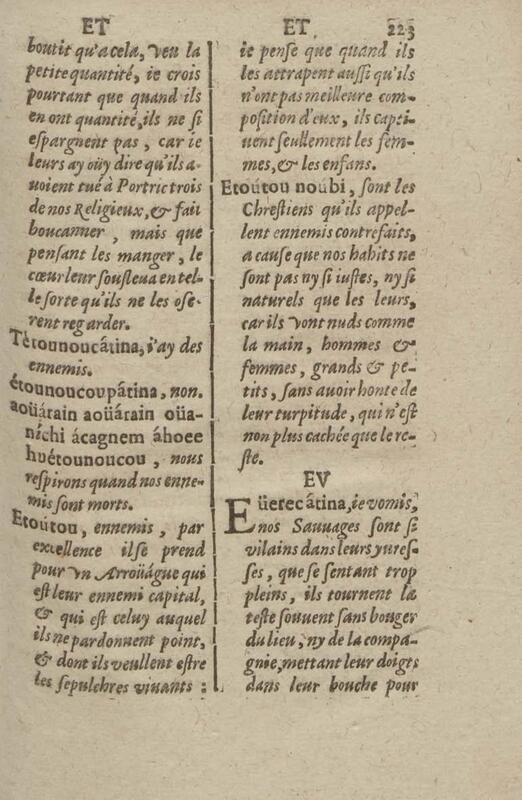 ET
boutit qu'a cela, veu la
petite quantité, ie crois
pourtant que quand ils
en ont quantité, ils ne si
espargnent pas, car ie
leurs ay oüy dire qu'ils a-
uoient tué à Portric trois
de nos Religieux, & fait
boucanner, mais que
pensant les manger, le
cœur leur sousleua en tel-
le sorte qu'ils ne les ose-
rent regarder.
Tétounoucátina, i'ay des
ennemis.
étounoucoupátina, non.
aoüárain aoüárain oüa-
níchi ácagnem áhoee
huétounoucou, nous
respirons quand nos enne-
mis sont morts.
Etoútou, ennemis, par
excellence il se prend
pour vn Arroüágue qui
est leur ennemi capital,
& qui est celuy auquel
ils ne pardonnent point,
& dont ils veullent estre
les sepulchres viuants :
ET. 223
ie pense que quand ils
les attrapent aussi qu'ils
n'ont pas meilleure com-
position d'eux, ils capti-
uent seullement les fem-
mes, & les enfans.
Etoútou noubi, sont les
Chrestiens qu'ils appel-
lent ennemis contrefaits,
a cause que nos habits ne
sont pas ny si iustes, ny si
naturels que les leurs,
car ils vont nuds comme
la main, hommes &
femmes, grands & pe-
tits, sans auoir honte de
leur turpitude, qui n'est
non plus cachée que le re-
ste.
EV
Eüerecátina, ie vomis,
nos Sauuages sont si
vilains dans leurs yures-
ses, que se sentant trop
pleins, ils tournent la
teste souuent sans bouger
du lieu, ny de la compa-
gnie, mettant leur doigts
dans leur bouche pour